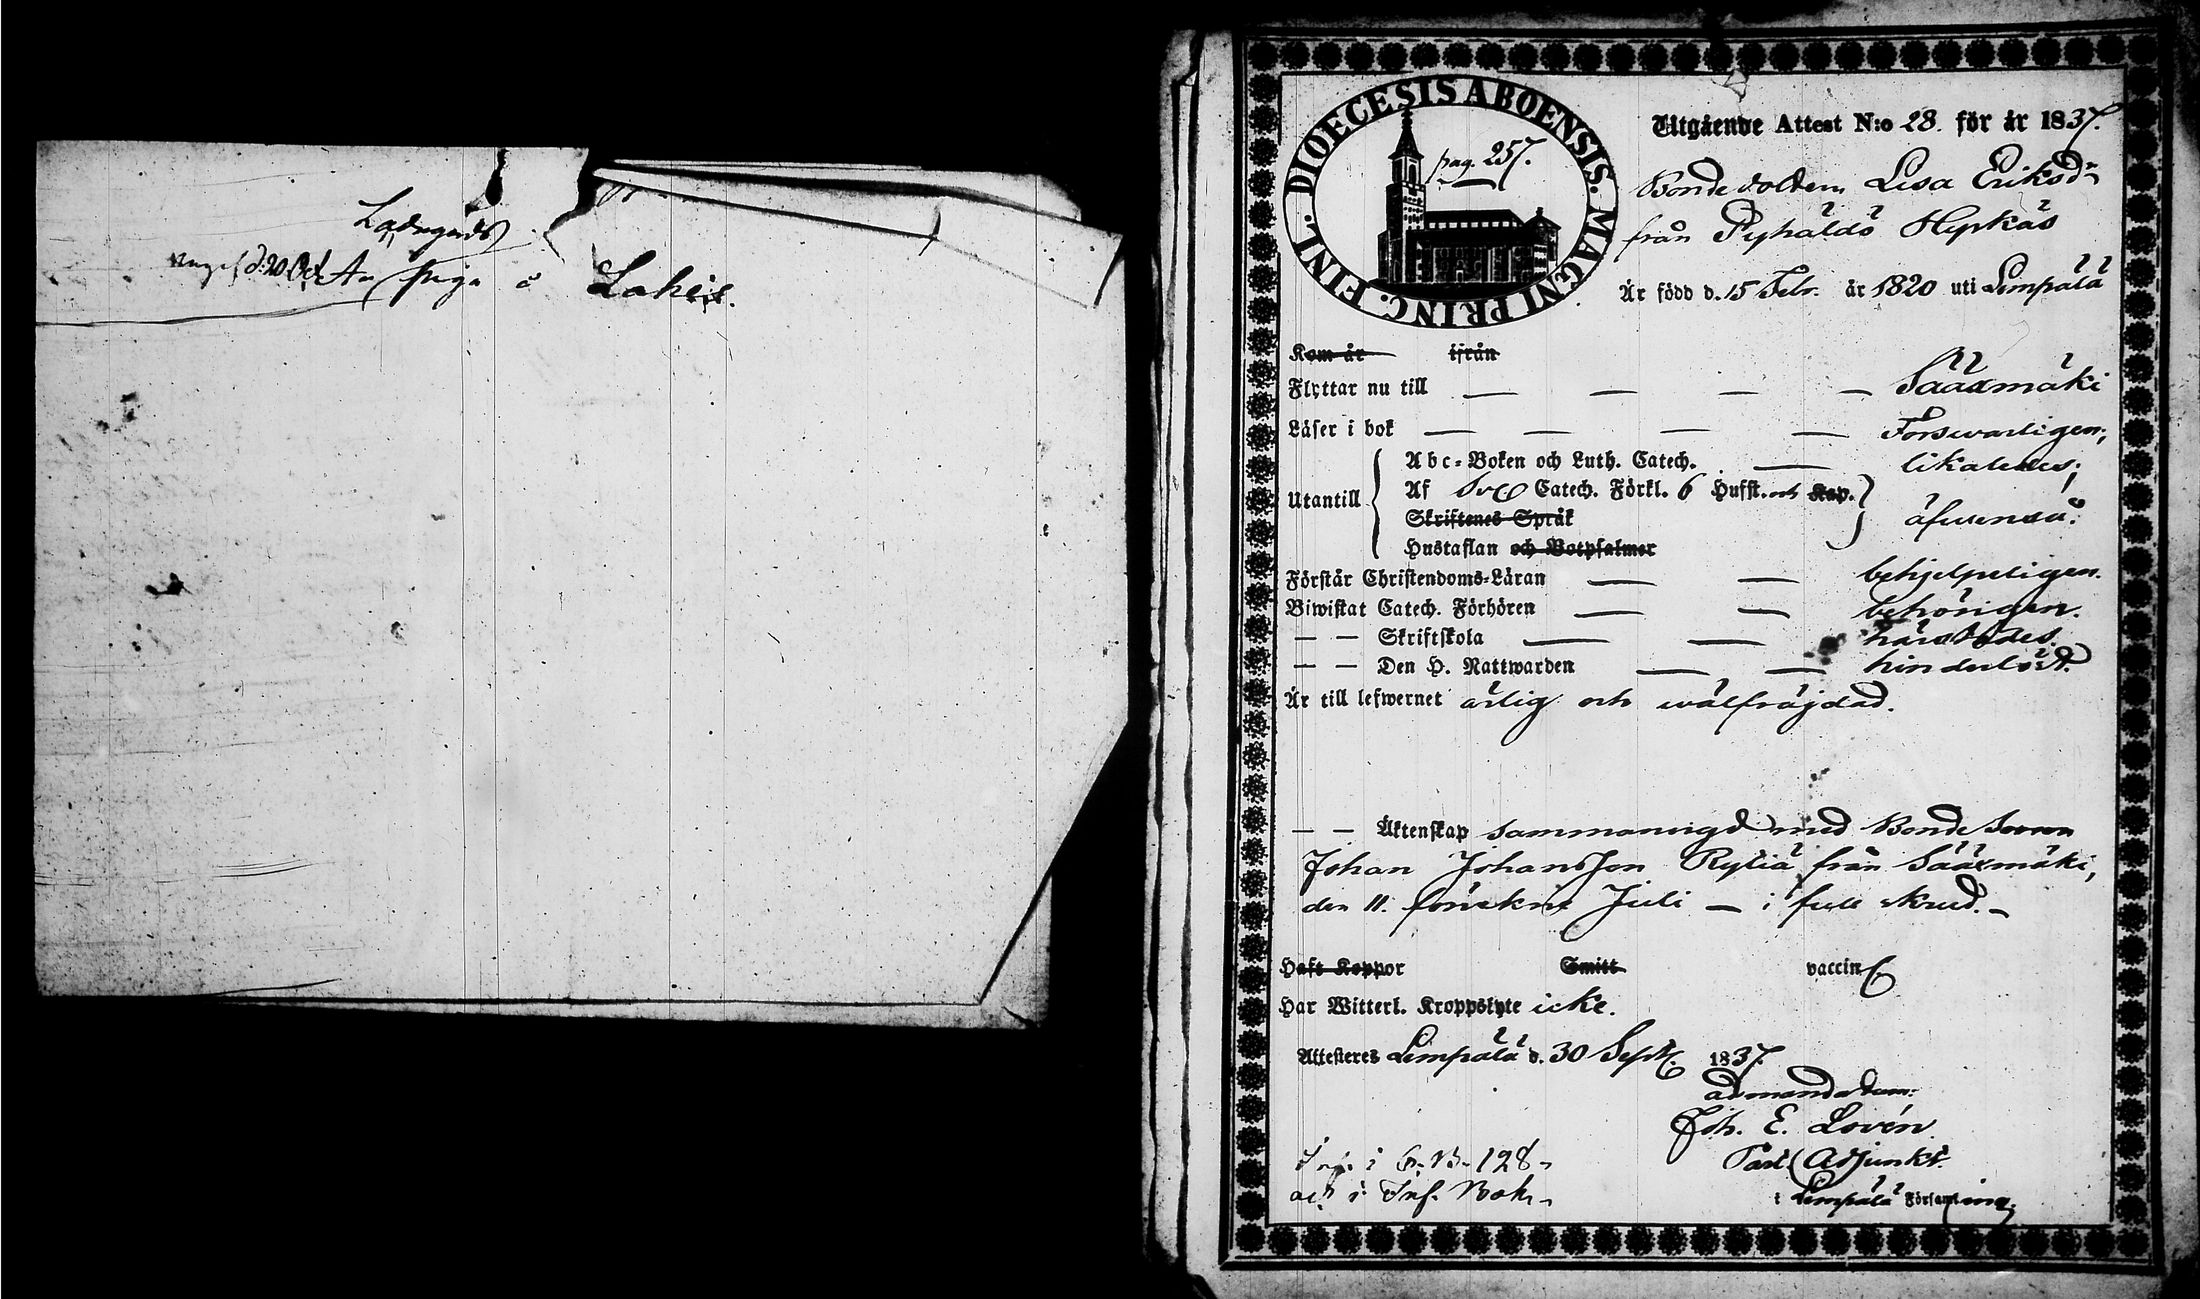 Ladugårds
piga å Laheis.
DIOECESIS ABOENSIS. MAGNI PRINC. FINL.
pag. 257.
Utgående Attest N:o 28. för år 1837.
Bondedottern Lisa Eriksdr
från Pyhäldö Hyrkäs
Är född d. 15 Febr. år 1820 uti Lempälä
Kom år ifrån
Flyttar nu till — — — — Sääxmäki
Läser i bok — — — — Försvarligen;
Utantill
Abc-Boken och Luth. Catech. — likaledes;
Af Sv Catech. Förkl. 6 Hufst. och Kap.
Skriftenes Språk
äfvenså.
Hustaflan och Botpsalmer
Förstår Christendoms-Läran — — behjelpeligen.
Biwistat Catech. Förhören — — behörigen.
— — Skriftskola — — härstädes.
— — Den H. Nattwarden — — hinderlöst.
Är till lefwernet ärlig och wälfräjdad.
— — Äktenskap sammanvigd med Bondesonen
Johan Johansson Rytiä från Sääxmäki,
den 11. sönckne Juli — i full skrud. —
Haft Koppor Smitt vaccin
Har Witterl. Kroppslyte icke.
Attesteres Lempälä d. 30 Sept. 1837.
ad mandatum:
Joh. E. Lovén
Past. Adjunkt.
i Lempälä Församling
i C. B. 128
i Inf. Bok